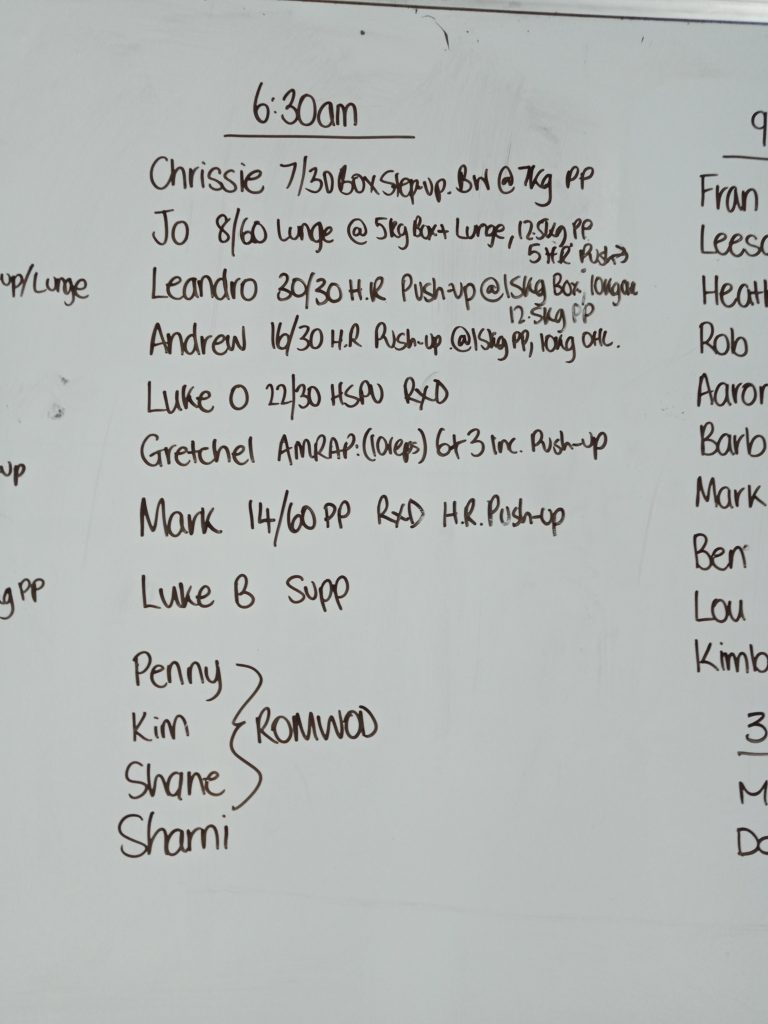 6:30am
Chrissie 7/30 Box Step-up. BW @ 7kg PP
Jo 8/60 Lunge @ 5kg Box + Lunge, 12.5kg PP
5 H.R Push
up/Lunge
Leandro 30/30 H.R Push-up @ 15kg Box,
12.5kg PP
Andrew 16/30 H.R Push-up @ 15kg PP, 10kg OHL.
Luke O 22/30 HSPU RXD
Gretchel AMRAP: (10reps) 6+3 inc. Push-up
up
Mark 14/60 PP RXD H.R. Push-up
g PP
Luke B Supp
Penny
Kim
ROMWOD
Shane
Shami
9
Fran
Leesa
Heath
Rob
Aaron
Barb
Mark
Ben
Lou
Kimb
3
M
Do